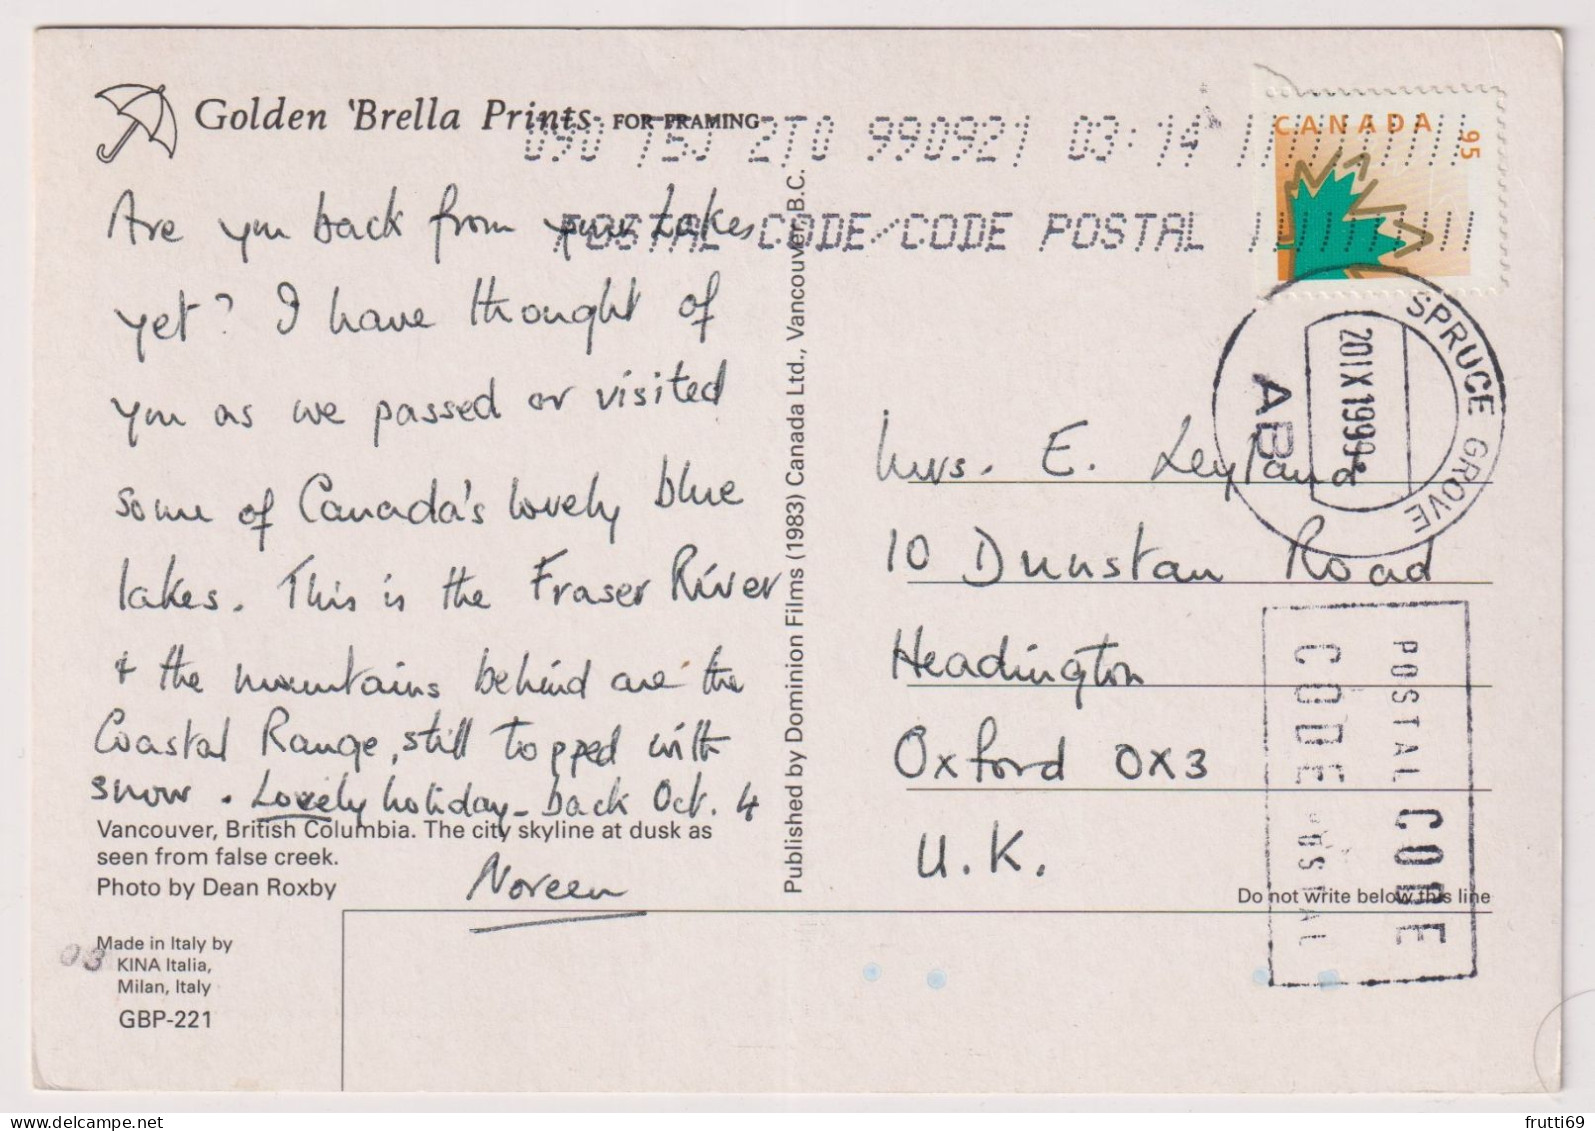 Golden 'Brella Prints FOR FRAMING
090 15J 2T0 990921 03:14
POSTAL CODE/CODE POSTAL
CANADA
95
SPRUCE GROVE
AB
20 IX 1999
Are you back from your Lakes
yet? I have thought of
you as we passed or visited
some of Canada's lovely blue
lakes. This is the Fraser River
& the mountains behind are the
Coastal Range, still topped with
snow. Lovely holiday - back Oct. 4
Noreen
Vancouver, British Columbia. The city skyline at dusk as
seen from false creek.
Photo by Dean Roxby
Made in Italy by
KINA Italia,
Milan, Italy
GBP-221
03
Published by Dominion Films (1983) Canada Ltd., Vancouver, B.C.
Mrs. E. Leyland
10 Dunstan Road
Headington
Oxford OX3
U.K.
Do not write below this line
POSTAL CODE
CODE POSTAL
frutti69